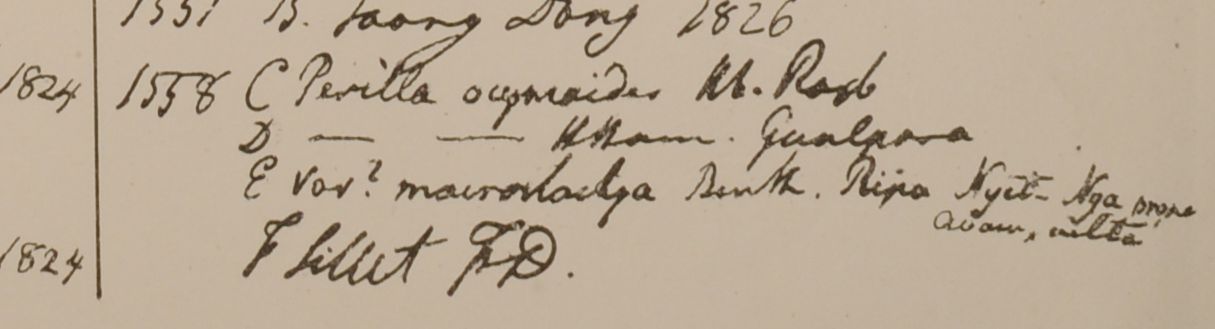 1551 B. Taong Dong 1826
1824 1558 C Perilla ocymoides Hb. Roxb
D — — HHam. Gualpara
E var? macrostachya Benth. Ripa Nyit-Nga prope
avam, culta
1824 F Sillet FD.